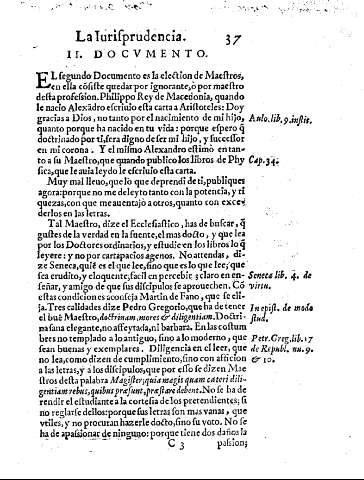 La Iurisprudencia. 37
II. DOCVMENTO.
EL segundo Documento es la eleccion de Maestros,
en ella cõsiste quedar por ignorante, ò por maestro
desta profession. Philippo Rey de Macedonia, quando
le nacio Alexãdro escriuio esta carta a Aristoteles: Doy
gracias a Dios, no tanto por el nacimiento de mi hijo,
quanto porque ha nacido en tu vida: porque espero q̃ Aulo. lib. 9. instit.
doctrinado por ti, sera digno de ser mi hijo, y successor
en mi corona. Y el mismo Alexandro estimò en tan-
to a su Maestro, que quando publico los libros de Phy Cap. 34.
sica, que le auia leydo le escriuio esta carta.
Muy mal lleuo, que lo que deprendi de ti, publiques
agora: porque no me deleyto tanto con la potencia, y ri
quezas, con que me auentajò a otros, quanto con exce-
derlos en las letras.
Tal Maestro, dize el Ecclesiastico, has de buscar, q̃
gustes de la verdad en la fuente, el mas docto, y que lea
por los Doctores ordinarios, y estudie en los libros lo q̃
leyere: y no por cartapacios agenos. No atiendas, di-
ze Seneca, quiẽ es el que lee, sino que es lo que lee; que
sea erudito, y eloquente, facil en percebir, y claro en en- Seneca lib. 4. de
señar, y amigo de que sus discipulos se aprouechen. Cõ virtu.
estas condiciones aconseja Martin de Fano, que se eli-
ja. Tres calidades dize Pedro Gregorio, que ha de tener In epist. de modo
el buẽ Maestro, doctrinam, mores & diligentiam. Doctri- stud.
na sana elegante, no affeytada, ni barbara. En las costum
bres no templado a lo antiguo, sino a lo moderno, que Petr. Greg. lib. 17
sean buenas y exemplares. Diligencia en el leer, que de Republ. nu. 9.
no lea, como dizen de cumplimiento, sino con afficion & 10.
a las letras, y a los discipulos, que por esso se dizen Mae
stros desta palabra Magister; quia magis quam cæteri dili-
gentiam rebus, quibus præsunt, præstare debent. No se ha de
rendir el estudiante a la cortesia de los pretendientes; si
no reglarse dellos: porque sus letras son mas vanas, que
vtiles, y no procuran hazerle docto, sino su voto. No se
ha de apassionar de ninguno: porque tiene dos daños la
C 3 passion;